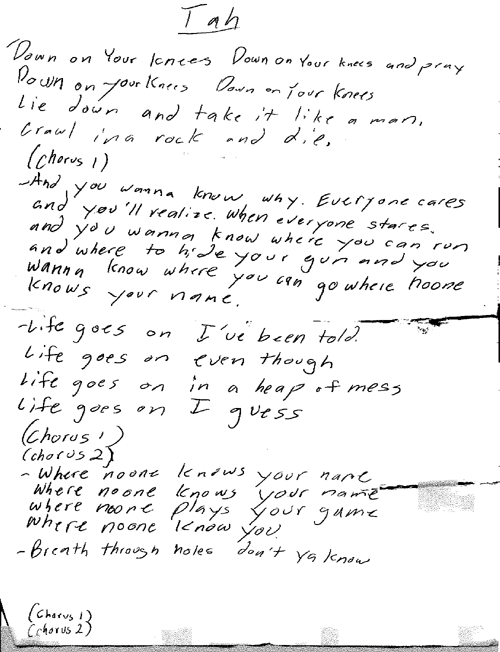 Tah
Down on Your knees Down on Your knees and pray
Down on your Knees Down on Your Knees
Lie down and take it like a man.
Crawl in a rock and die.
(Chorus 1)
-And, you wanna know why. Everyone cares
and you'll realize. When everyone stares.
and you wanna know where you can run
and where to hide your gun and you
wanna know where you can go where noone
knows your name.
-Life goes on I've been told.
Life goes on even though
Life goes on in a heap of mess
Life goes on I guess
(Chorus 1)
(chorus 2)
- Where noone knows your name
Where noone knows your name
where noone plays your game
Where noone know you
-Breath through holes don't ya know
(Chorus 1)
(chorus 2)